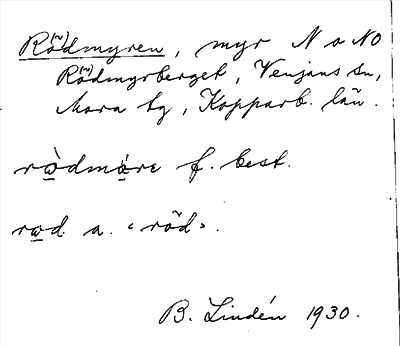 Rödmyren, myr N o NO
Rödmyrberget, Venjans sn,
Mora tg, Kopparb. län.
rọ̀dmọ́re f. best.
rọd. a. ‹röd›.
B. Lindén 1930.